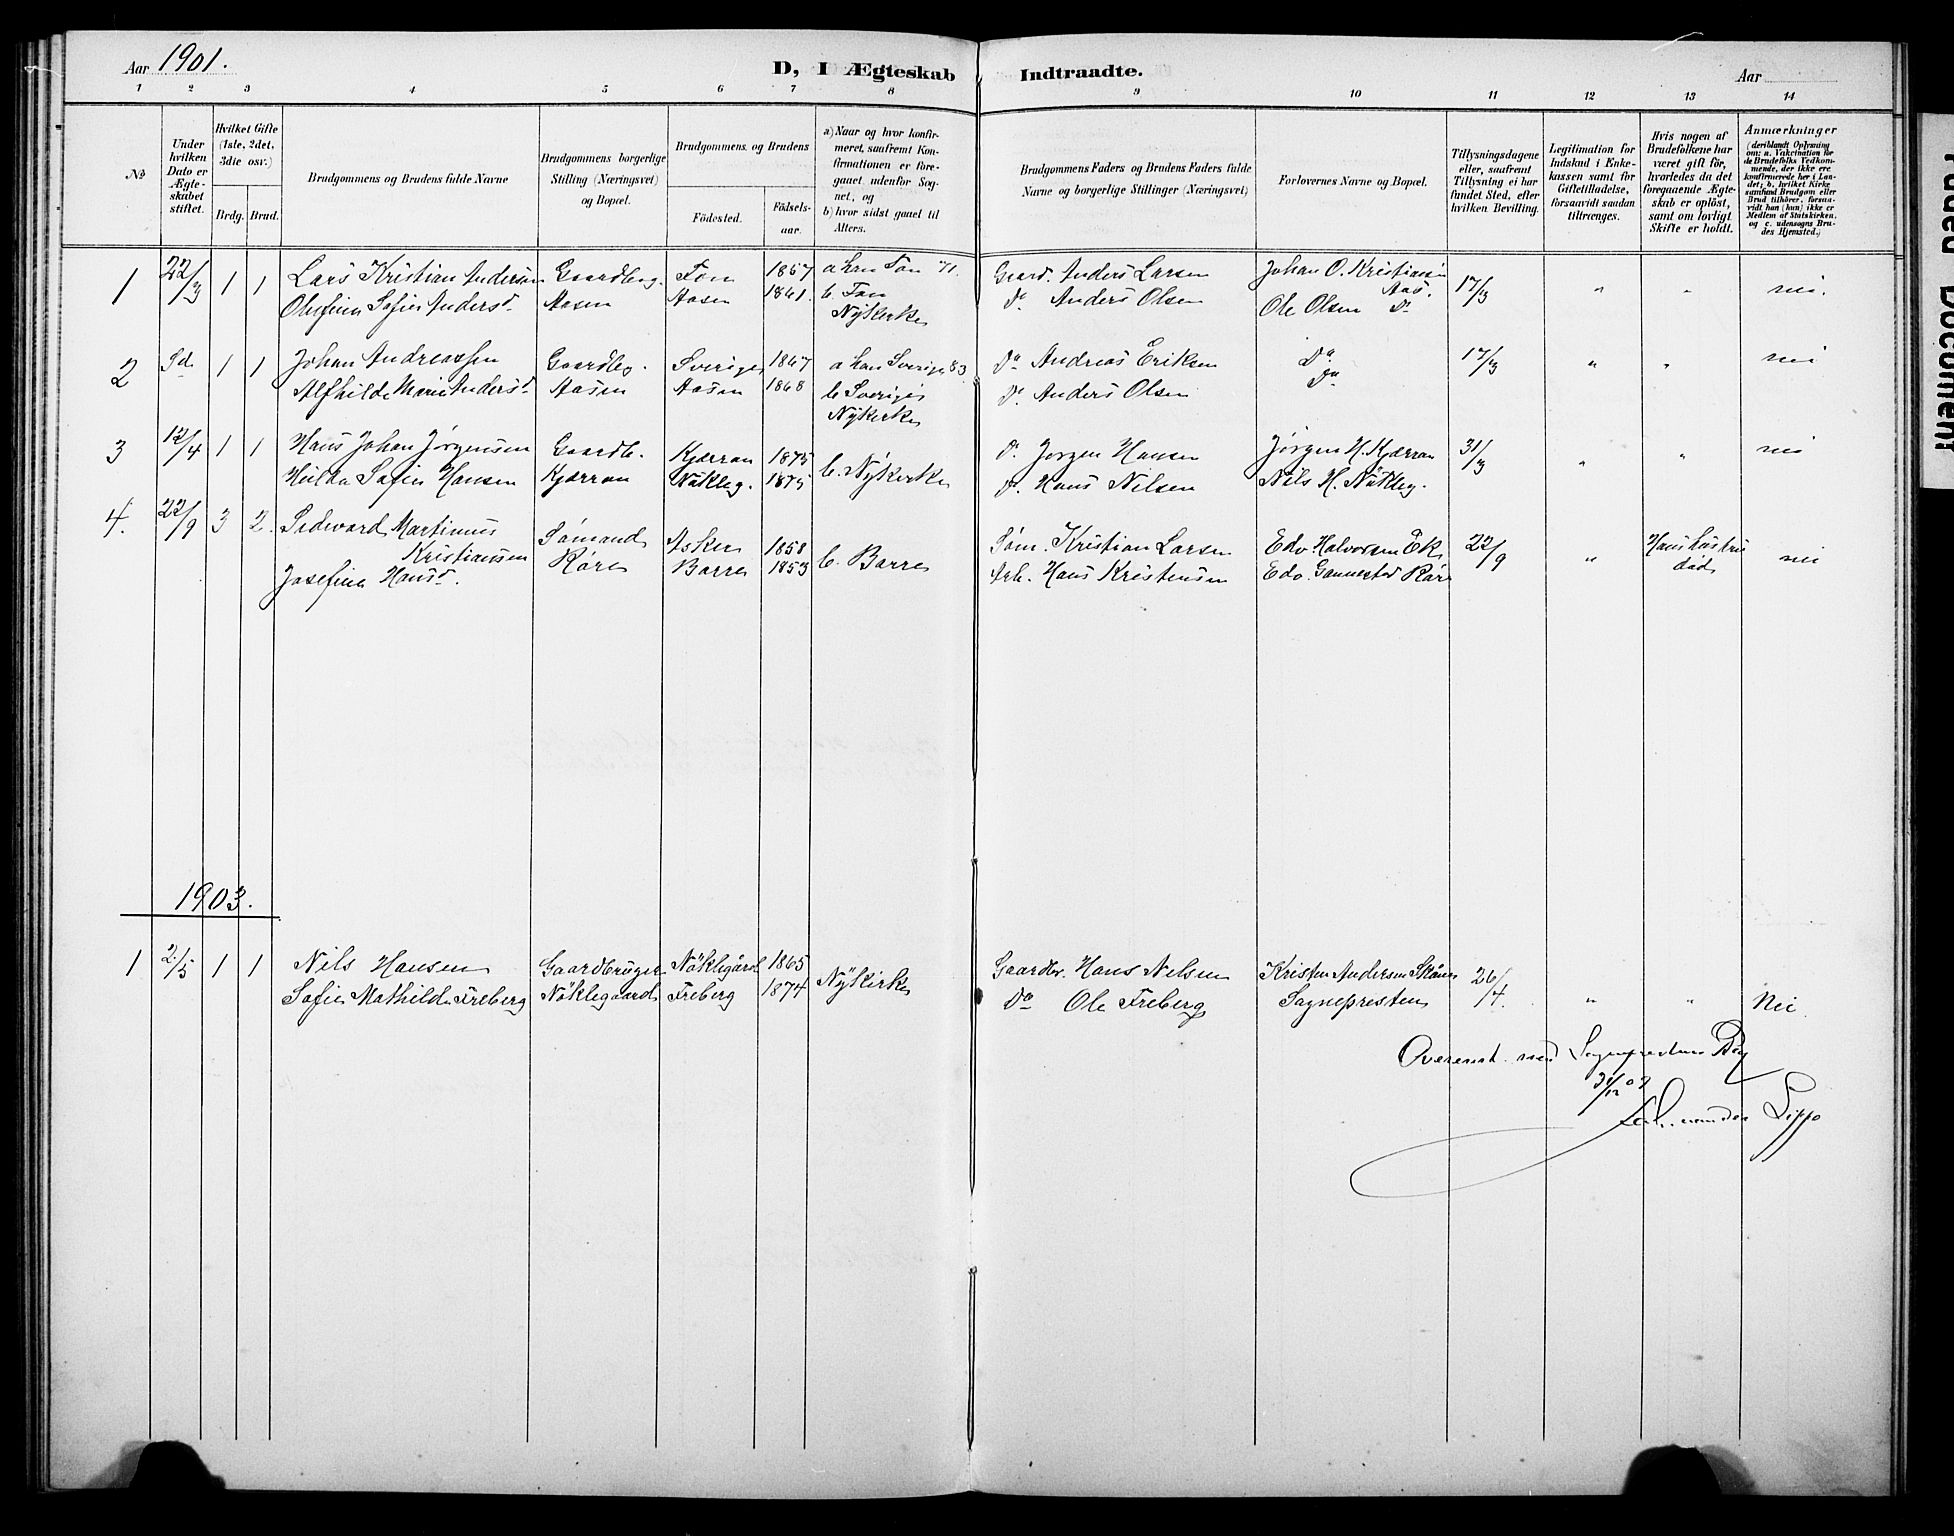 Aar 1901.
D, I Ægteskab Indtraadte.
Aar
1 2 3 4 5 6 7 8 9 10 11 12 13 14
No
Under hvilken Dato er Ægteskabet stiftet.
Hvilket Gifte (1ste, 2det, 3die osv.)
Brdg. Brud.
Brudgommens og Brudens fulde Navne
Brudgommens borgerlige Stilling (Næringsvei) og Bopæl.
Brudgommens og Brudens
Fødested. Fødselsaar.
a) Naar og hvor konfirmeret, saafremt Konfirmationen er foregaaet udenfor Sognet, og
b) hvor sidst gaaet til Alters.
Brudgommens Faders og Brudens Faders fulde Navne og borgerlige Stillinger (Næringsvei)
Forlovernes Navne og Bopæl.
Tillysningsdagene eller, saafremt Tillysning ei har fundet Sted, efter hvilken Bevilling.
Legitimation for Indskud i Enkekassen samt for Giftetilladelse, forsaavidt saadan tiltrænges.
Hvis nogen af Brudefolkene har været gift før, hvorledes da det foregaaende Ægteskab er opløst, samt om lovligt Skifte er holdt.
Anmærkninger (deriblandt Oplysning om: a. Vakcination for de Brudefolks Vedkommende, der ikke ere konfirmerede her i Landet; b. hvilket Kirkesamfund Brudgom eller Brud tilhører, forsaavidt han (hun) ikke er Medlem af Statskirken, og c. udensogns Brudes Hjemsted.)
1 22/3 1 1 Lars Kristian Andersen Gaardbrug. Fon 1857 a han Fon 71. Gaard. Anders Larsen Johan O. Kristiansen Aas. 17/3 " " nei.
Olufine Sofie Andersd Aasen Aasen 1861. b. Fon Do Anders Olsen Ole Olsen Do
Nÿkirke
2 Sd. 1 1 Johan Andreassen Gaardbrg. Sverige 1867 a han Sverige 83 Do Andreas Eriksen Do 17/3 " " nei
Alfhilde Marie Andersd Aasen Aasen 1868 b Sverige Do Anders Olsen Do
Nÿkirke
3 12/4 1 1 Hans Johan Jørgensen Gaardb. Kjærran 1875 b. Nÿkirke Do Jørgen Hansen Jørgen H. Kjærran 31/3 " " nei
Hilda Sofie Hansen Kjærran Nökleg. 1875 Do Hans Nilsen Nils H. Nökleg.
4. 22/9 3 2. Sedward Martinius Kristiansen Sømand Asker 1858 b. Borre Søm. Kristian Larsen Edv. Halvorsen Ek 22/9 " Hans hustru død nei
Josefine Hansd. Røre Borre 1853 Arb. Hans Kristensen Edv. Gannestad Rør
1903.
1 2/5 1 1 Nils Hansen Gaardbruger Nöklegård 1865 Nÿkirke Gaardbr. Hans Nilsen Kristen Andersen Skåne 26/4. " " Nei
Sofie Mathilde Freberg Nöklegaard Freberg 1874 Do Ole Freberg Sognepresten
Overenst. med Sognprestens Bog
31/12 07
Lippe
Faded Document